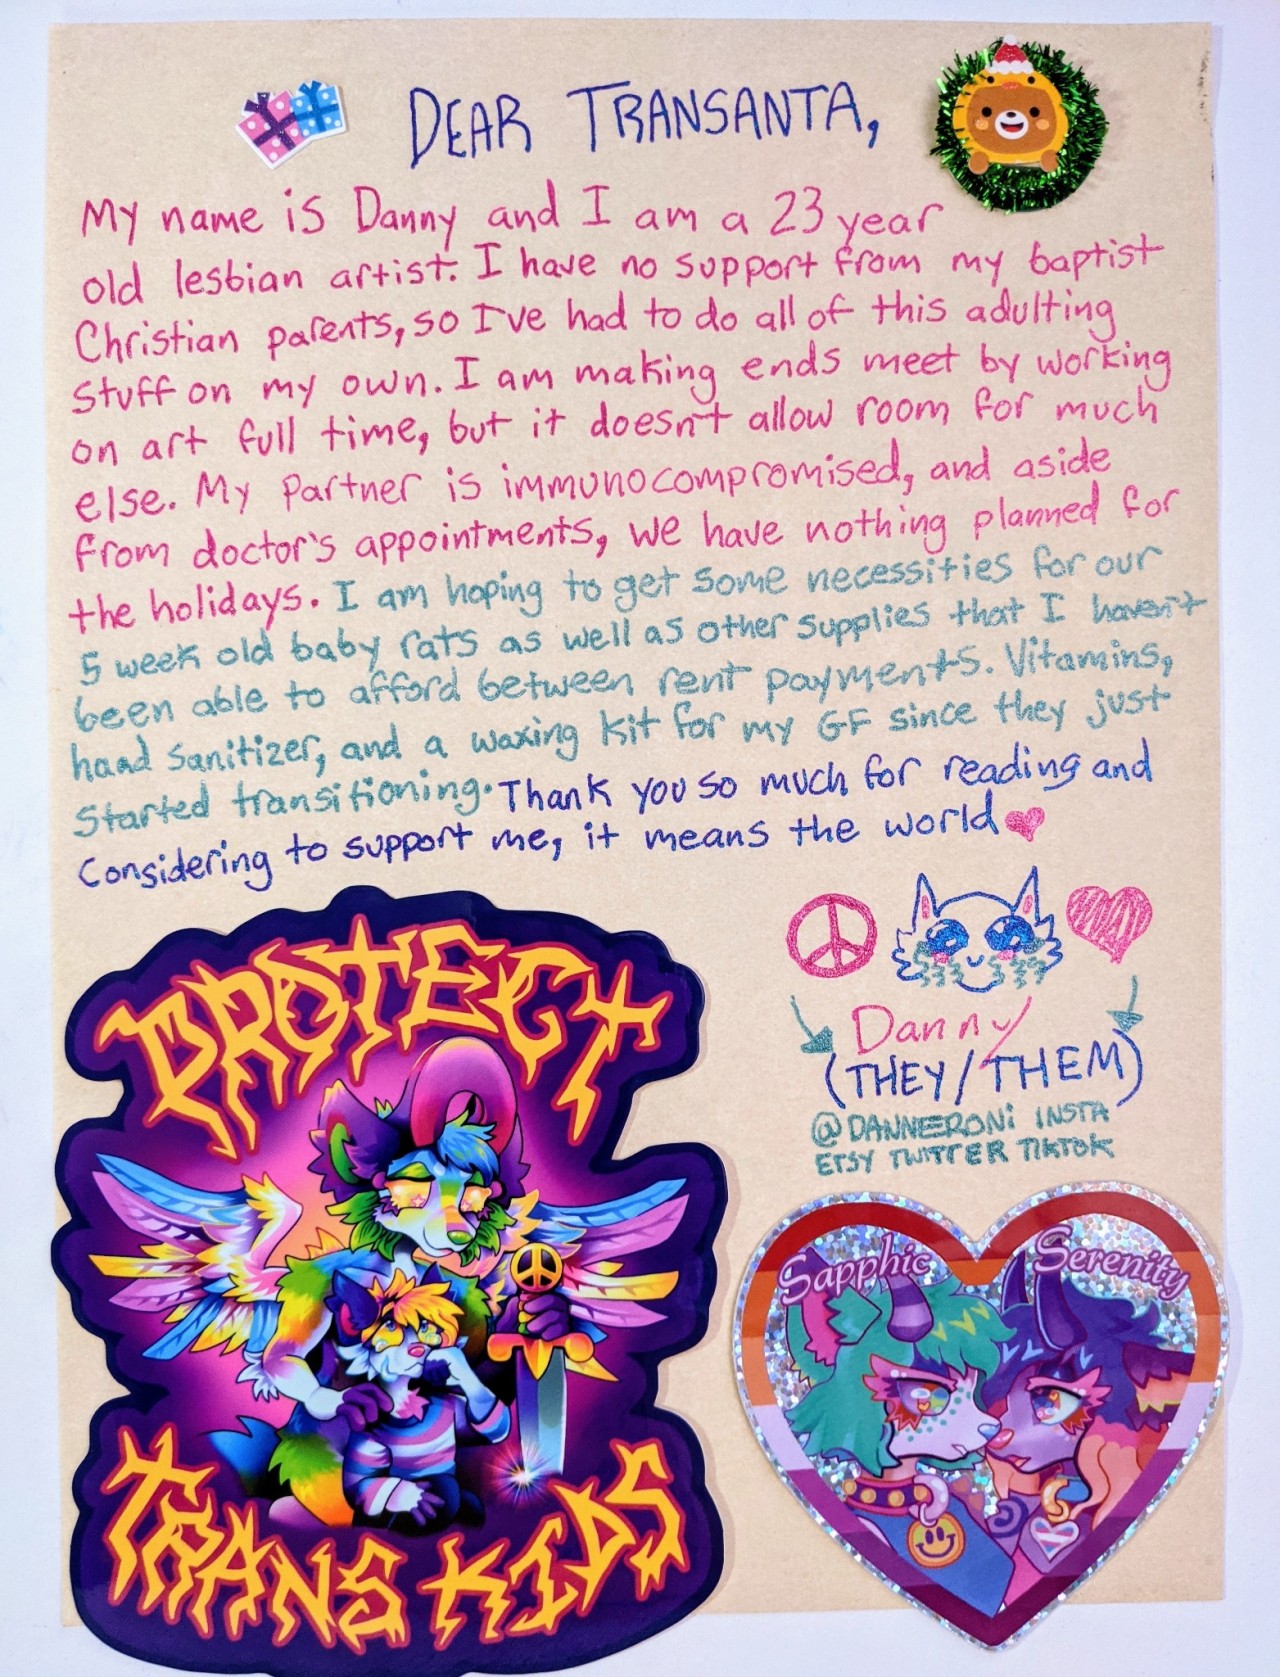 DEAR TRANSANTA,
My name is Danny and I am a 23 year
old lesbian artist. I have no support from my baptist
Christian parents, so I've had to do all of this adulting
stuff on my own. I am making ends meet by working
on art full time, but it doesn't allow room for much
else. My partner is immunocompromised, and aside
from doctor's appointments, we have nothing planned for
the holidays. I am hoping to get some necessities for our
5 week old baby rats as well as other supplies that I haven't
been able to afford between rent payments. Vitamins,
hand sanitizer, and a waxing kit for my GF since they just
started transitioning. Thank you so much for reading and
Considering to support me, it means the world
Danny
(THEY/THEM)
@DANNERONi INSTA
ETSY TWITTER TIKTOK
PROTECT
TRANS KIDS
Sapphic Serenity